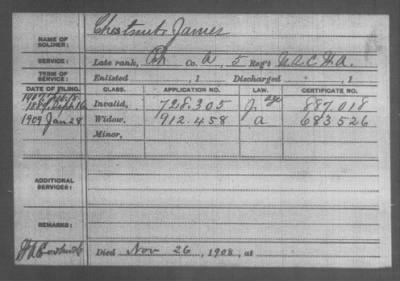 NAME OF SOLDIER: Chestnut, James
SERVICE: Late rank, Co. A, 5 Reg't U.S.C.H.A.
TERM OF SERVICE: Enlisted , 1 Discharged , 1
DATE OF FILING. CLASS. APPLICATION NO. LAW. CERTIFICATE NO.
1889 Sept 16 Invalid, 728.305 J. age 887.018
1909 Jan 28 Widow, 912.458 a 683526
Minor,
ADDITIONAL SERVICES:
REMARKS:
Died Nov 26, 1908, at